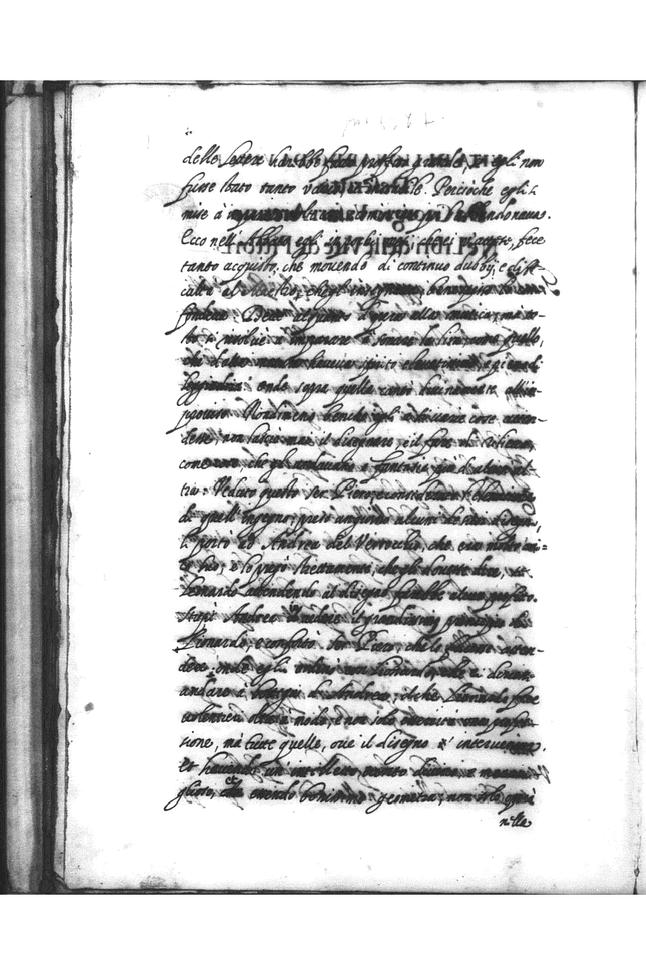 delle lettere harebbe fatto profitto grande, se egli non
fusse stato tanto vario, et instabile. Percioche egli si
mise à molte cose
Ecco nell' Abbaco egli in pochi mesi, ch'ei v'attese, fece
tanto acquisto, che movendo di continuo dubbij, e diffi-
cultà al Maestro, che gl'insegnava, bene spesso lo con-
fondeva. Dette alquanto d'opera alla musica; ma to-
sto si risolvè à imparare à sonare la lira, come quello,
che haveva spirito elevatissimo, e
leggiadria: onde sopra quella cantò divinamente all'im-
proviso. Nondimeno benche egli à si varie cose atten-
desse, non lasciò mai il disegnare, e il fare di rilievo,
come cose, che gli andavano à fantasia più d'alcun'al-
tra. Veduto questo Ser Piero, e considerato
di quell' ingegno, preso un giorno alcuni de suoi disegni,
li portò ad Andrea del Verrocchio, che era molto ami=
co suo, e lo pregò strettamente, che gli dovesse dire, se
Leonardo attendendo al disegno farebbe alcun profitto.
Stupì Andrea il grandissimo principio di
Lionardo, e confortò Ser Piero, che lo facesse atten-
dere: onde egli ordinò con Lionardo, che
andare à bottega d'Andrea, il che Lionardo fece
volentieri oltre à modo, e non solo esercitò una profes-
sione, mà tutte quelle, ove il disegno s' interveniva.
Et havendo un intelletto tanto divino, e maravi-
glioso, che essendo bonissimo geometra, non solo operò
nella